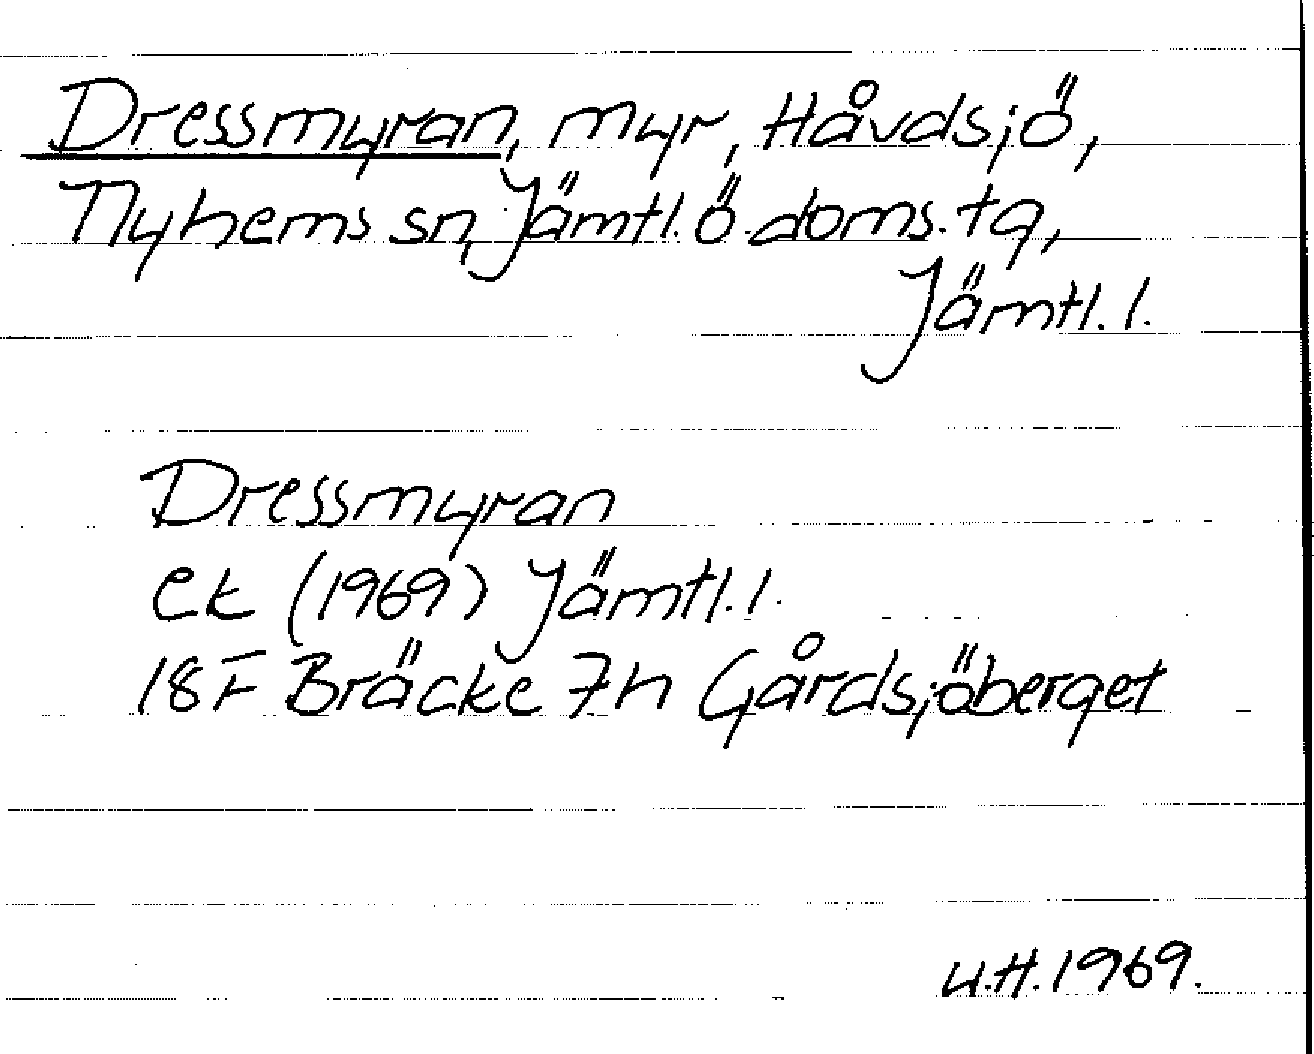 Dressmyran, myr, Håvdsjö,
Nyhems sn, Jämtl. ö. doms. tg,
Jämtl. l.
Dressmyran
ek (1969) Jämtl. l.
18F Bräcke 7h Gårdsjöberget
U.H. 1969.